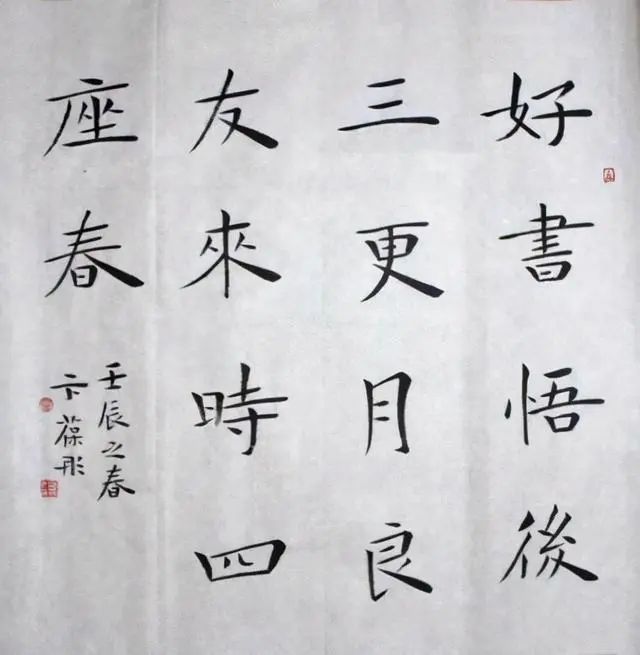 好書悟後
三更月良
友來時四
座春
壬辰之春
卞葆彤